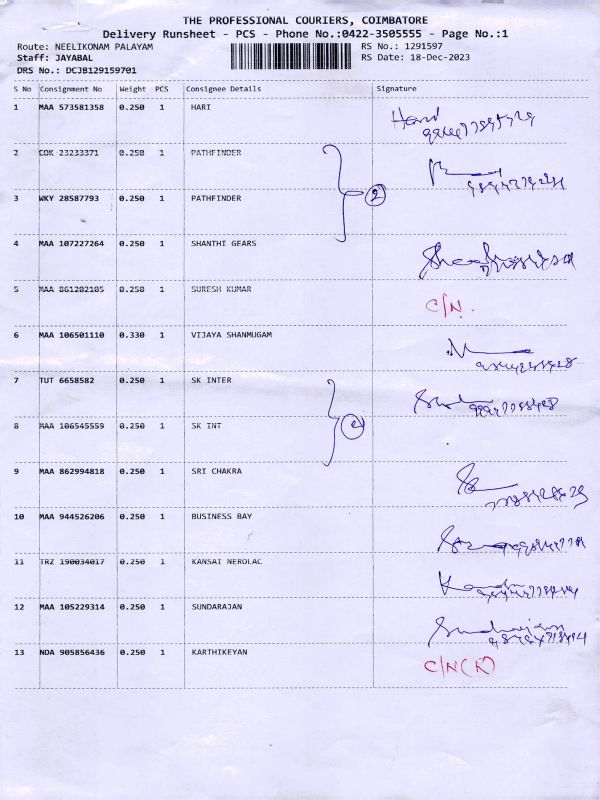 THE PROFESSIONAL COURIERS, COIMBATORE
Delivery Runsheet - PCS - Phone No.:0422-3505555 - Page No.:1
Route: NEELIKONAM PALAYAM RS No.: 1291597
Staff: JAYABAL RS Date: 18-Dec-2023
DRS No.: DCJB129159701
S No Consignment No Weight PCS Consignee Details Signature
1 MAA 573581358 0.250 1 HARI
2 COK 23233371 0.250 1 PATHFINDER
2
3 WKY 28587793 0.250 1 PATHFINDER
4 MAA 107227264 0.250 1 SHANTHI GEARS
5 MAA 861202105 0.250 1 SURESH KUMAR C/N.
6 MAA 106501110 0.330 1 VIJAYA SHANMUGAM
7 TUT 6658582 0.250 1 SK INTER
8 MAA 106545559 0.250 1 SK INT
9 MAA 862994818 0.250 1 SRI CHAKRA
10 MAA 944526206 0.250 1 BUSINESS BAY
11 TRZ 190034017 0.250 1 KANSAI NEROLAC
12 MAA 105229314 0.250 1 SUNDARAJAN
13 NDA 905856436 0.250 1 KARTHIKEYAN C/N(R)